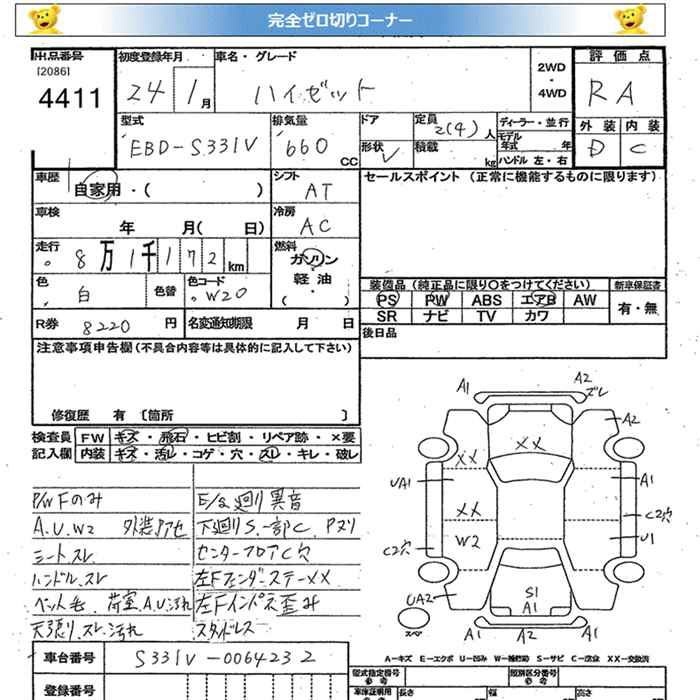 完全ゼロ切りコーナー
出品番号 初度登録年月 車名・グレード 評価点
[2086] 4411 24 1月 ハイゼット 2WD・4WD RA
型式 排気量 ドア 定員 2(4)人 ディーラー・並行 外装 内装
EBD-S331V 660 CC 形状 V 積載 kg モデル年式 年 ハンドル 左・右 D C
車歴 自家用・( ) シフト AT セールスポイント (正常に機能するものに限ります)
車検 年 月( 日) 冷房 AC
走行 8万1千172km 燃料 ガソリン・軽油・( )
色 白 色替 色コード W20 装備品 (純正品に限り○をつけてください) 新車保証書
PS PW ABS エアB AW 有・無
SR ナビ TV カワ
R券 8220円 名変通知期限 月 日 後日品
注意事項申告欄(不具合内容等は具体的に記入して下さい)
修復歴 有 [箇所 ]
検査員 FW キズ・飛石・ヒビ割・リペア跡・×要
記入欄 内装 キズ・汚レ・コゲ・穴・スレ・キレ・破レ
P/W Fのみ E/g廻り異音
A.U.W2 外装アセ 下廻りS.一部C Pヌリ
シートスレ センターフロアC穴
ハンドル.スレ 左Fフェンダーステー××
ペット毛.荷室.A.U.汚れ 左Fインパネ歪み
天張り.スレ.汚れ スタッドレス
A1 A2 ズレ
A2
××
××
UA1 A1
××
C2穴
W2 U1
C2穴
UA2 S1
A1
スペア A1 A2 A1
A-キズ E-エクボ U-凹み W-補修跡 S-サビ C-腐食 XX-交換済
車台番号 S331V-0064232
登録番号 型式指定番号 参考 類別区分番号 参考
車体証明用 参考 長さ 幅 高さ